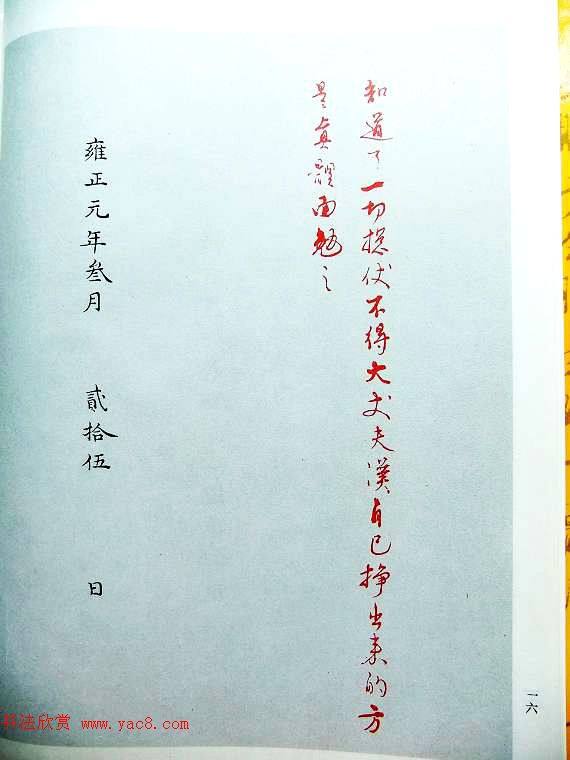 知道了一切捴仗不得大丈夫漢自己掙出來的方
是真體面勉之
雍正元年叁月 貳拾伍 日
一六
书法欣赏 www.yac8.com